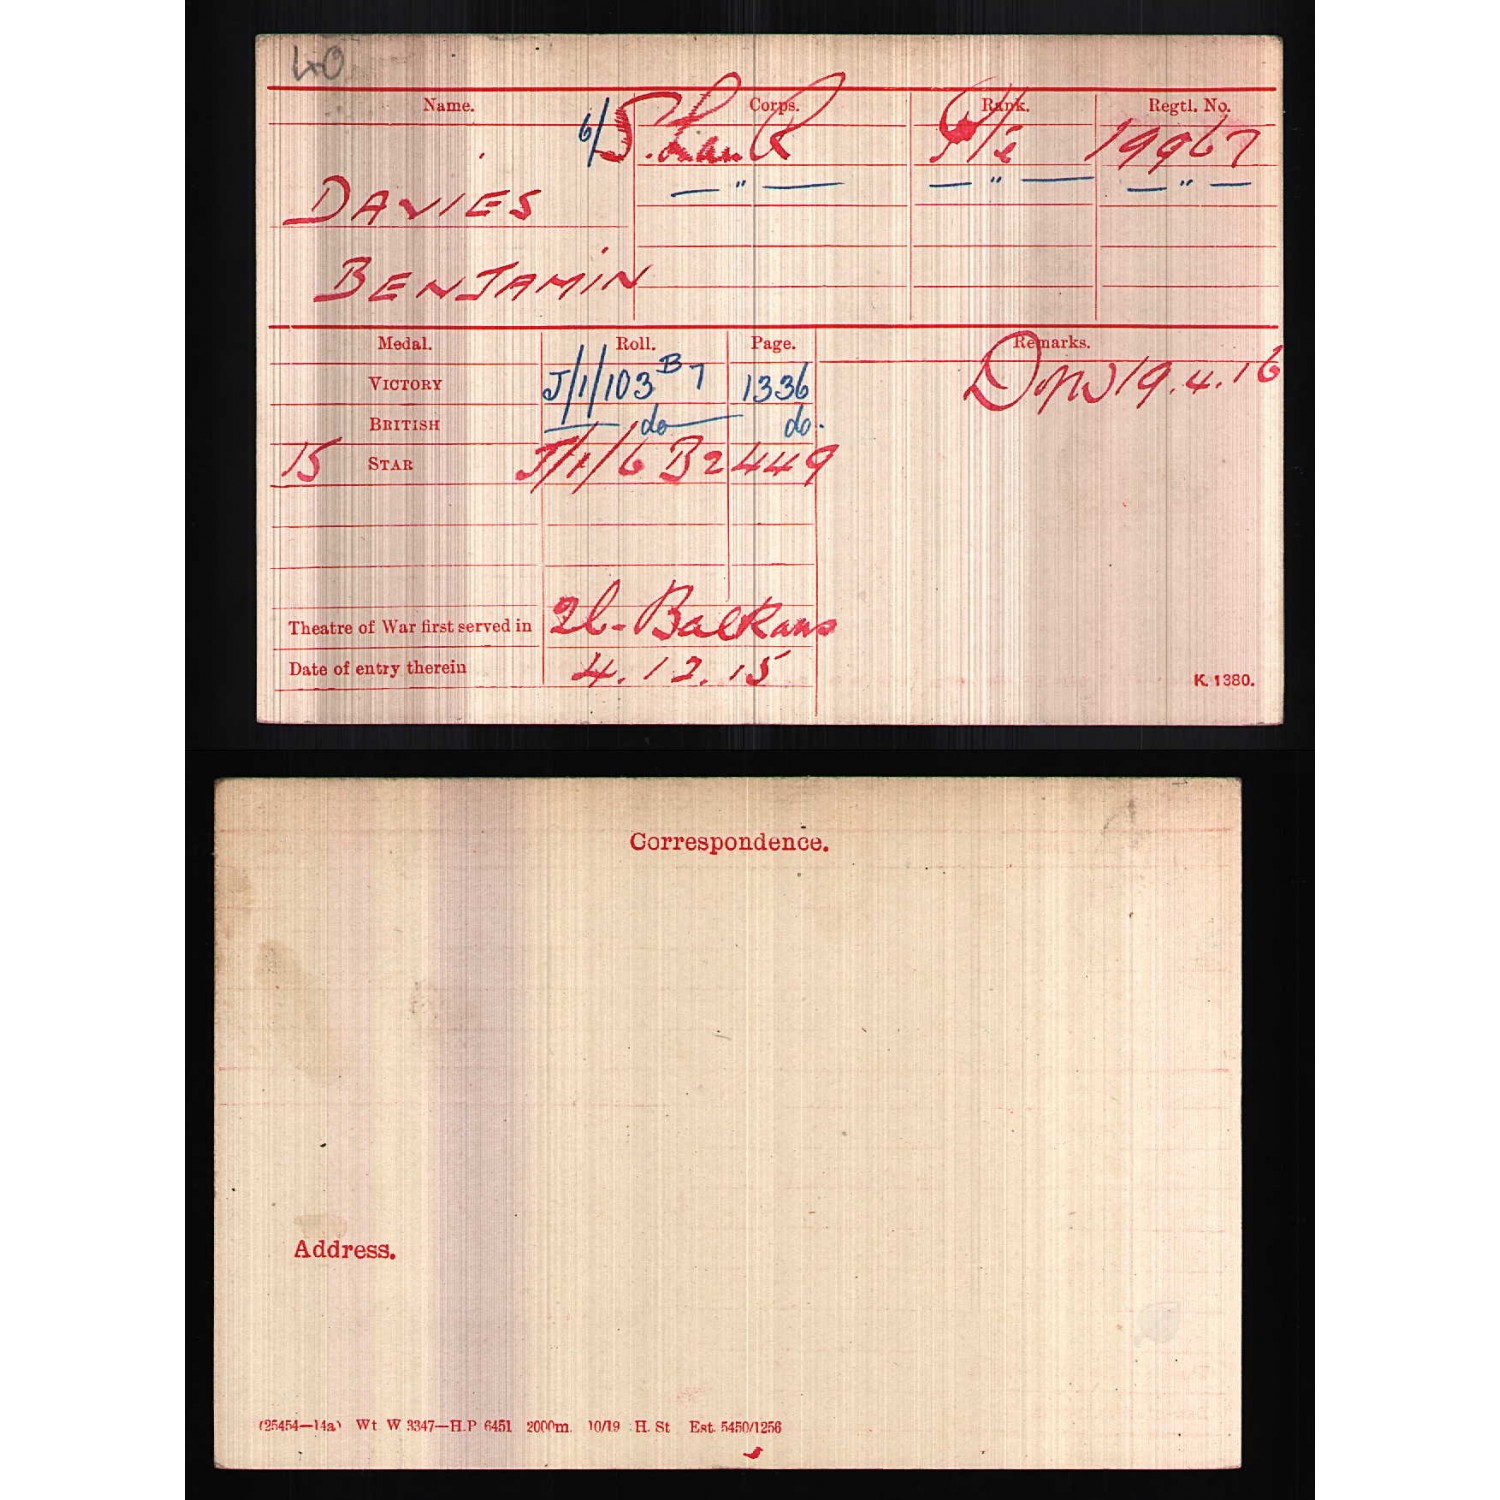 40
Name. Corps. Rank. Regtl. No.
6/S. Lan R Pte 19967
— " — — " — — " —
DAVIES
BENJAMIN
Medal. Roll. Page. Remarks.
VICTORY J/1/103 B7 1336 D of W 19.4.16
BRITISH — do — do.
15 STAR J/1/6 B2 449
Theatre of War first served in 2b - Balkans
Date of entry therein 4.12.15
K. 1380.
Correspondence.
Address.
(25454—14a) Wt W 3347—H.P 6451 2000m. 10/19 H. St Est. 5450/1256